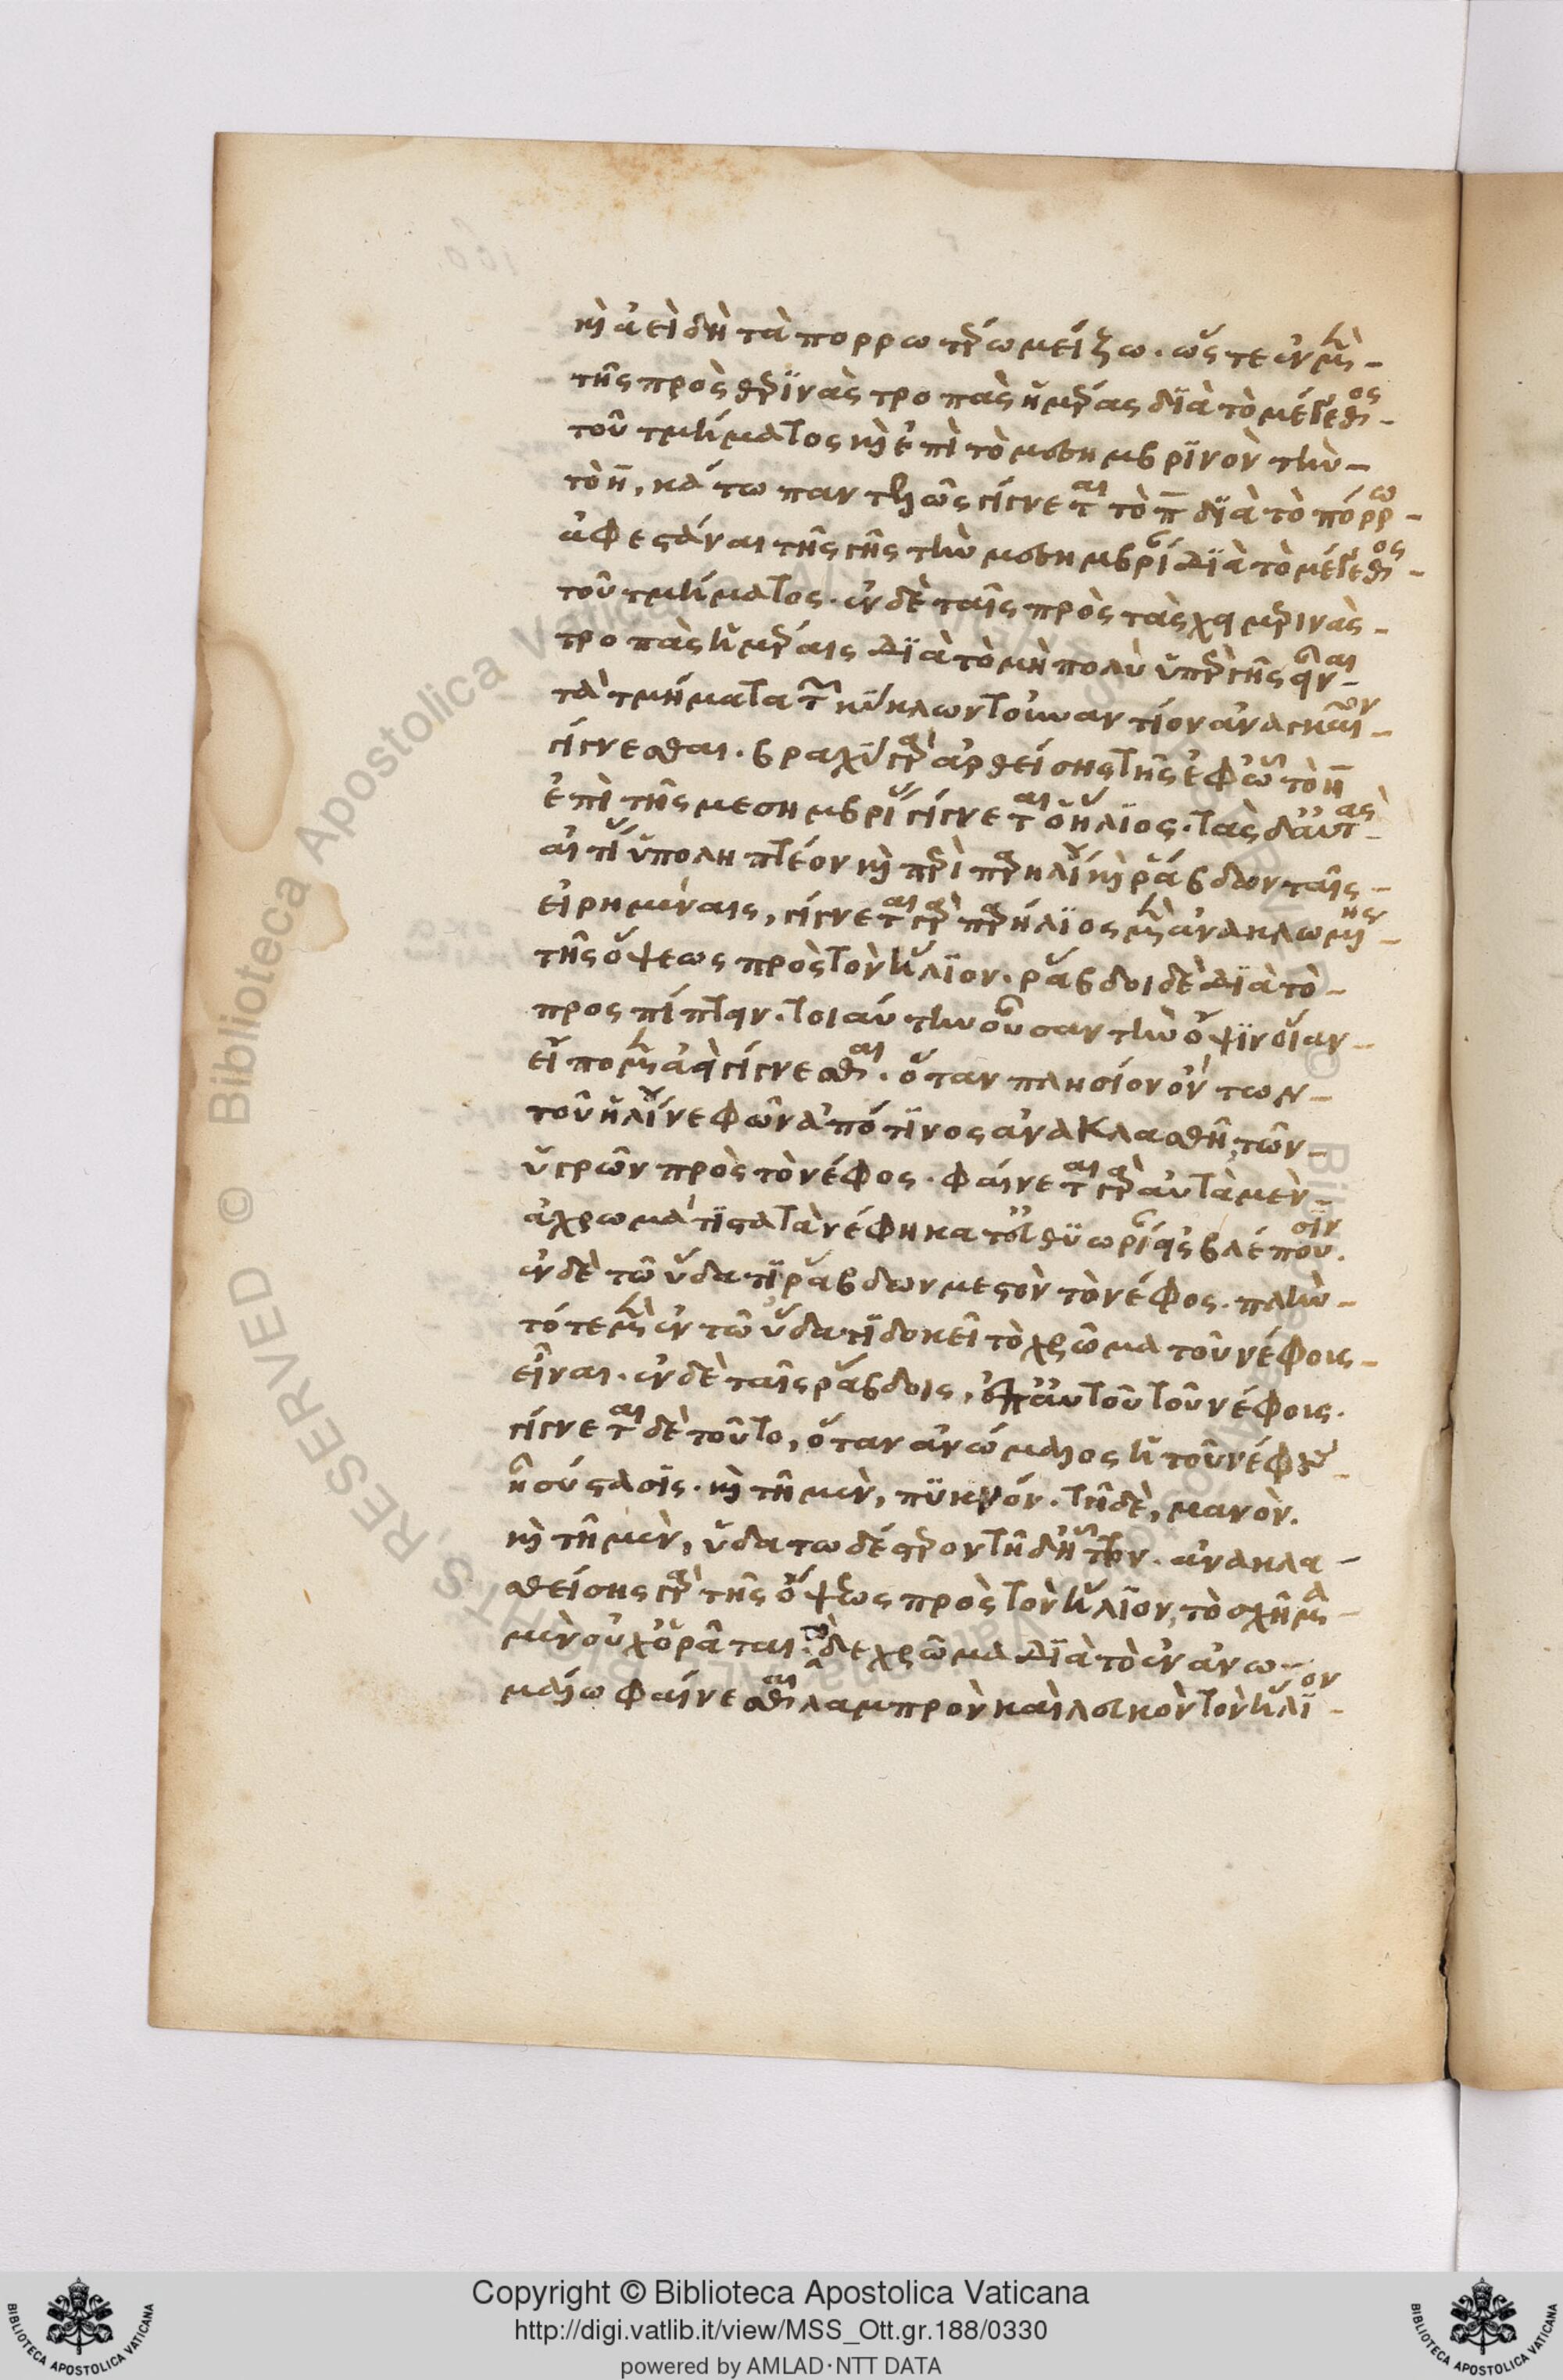 καὶ ἀεὶ δὴ τὰ πορρωτέρω μείζω. ὥστε ἐν μὲν
τῆς πρὸς θερινὰς τροπὰς ἡμέρας διὰ τὸ μέγεθος
τοῦ τμήματος καὶ ἐπὶ τὸ μεσημβρινὸν τὴν
τὸ η, κάτω παντελῶς γίγνεται τὸ π διὰ τὸ πόρρω
ἀφεστάναι τῆς γῆς τὴν μεσημβρί διὰ τὸ μέγεθος
τοῦ τμήματος. ἐν δὲ ταῖς πρὸς τὰς χειμερινὰς
τροπὰς ἡμέραις διὰ τὸ μὴ πολὺ ὑπὲρ γῆς εἶναι
τὰ τμήματα τῶν κύκλων τοὐναντίον ἀναγκαῖον
γίγνεσθαι. βραχὺ γὰρ ἀρθείσης τῆς ἐφ' ὧ τὸ η
ἐπὶ τῆς μεσημβρί γίγνεται ὁ ἥλιος. τὰς δ' αὐτὰς
αἰτί ὑποληπτέον καὶ περὶ παρηλί καὶ ῥάβδων ταῖς
εἰρημέναις, γίγνεται γὰρ παρήλιος μὲν ἀνακλωμένης
τῆς ὄψεως πρὸς τὸν ἥλιον. ῥάβδοι δὲ διὰ τὸ
προσπίπτειν. τοιαύτην οὖσαν τὴν ὄψιν οἵαν
εἴπομεν ἀεὶ γίγνεσθαι. ὅταν πλησίον ὄντων
τοῦ ἡλί νεφῶν ἀπό τινος ἀνακλασθῆ, τῶν
ὑγρῶν πρὸς τὸ νέφος. φαίνεται γὰρ αὐτὰ μὲν
ἀχρωμάτιστα τὰ νέφη κατ' εὐθυωρί εἰσβλέπουσιν.
ἐν δὲ τῶ ὕδατι ῥάβδων μεστὸν τὸ νέφος. πλὴν
τότε μὲν ἐν τῶ ὕδατι δοκεῖ τὸ χρῶμα τοῦ νέφους
εἶναι. ἐν δὲ ταῖς ῥάβδοις, ἐπ' αὐτοῦ τοῦ νέφους.
γίγνεται δὲ τοῦτο, ὅταν ἀνώμαλος ἦ τοῦ νέφους
ἡ σύστασις. καὶ τῆ μὲν, πυκνόν. τῆ δὲ, μανὸν.
καὶ τῆ μὲν, ὑδατωδέστερον τῆ δ' ἧττον. ἀνακλα
σθείσης γὰρ τῆς ὄψεως πρὸς τὸν ἥλιον, τὸ σχῆμα
μὲν οὐχ ὁρᾶται. τὸ δὲ χρῶμα διὰ τὸ ἐν ἀνω
μάλω φαίνεσθαι λαμπρὸν καὶ λευκὸν τὸν ἥλιον